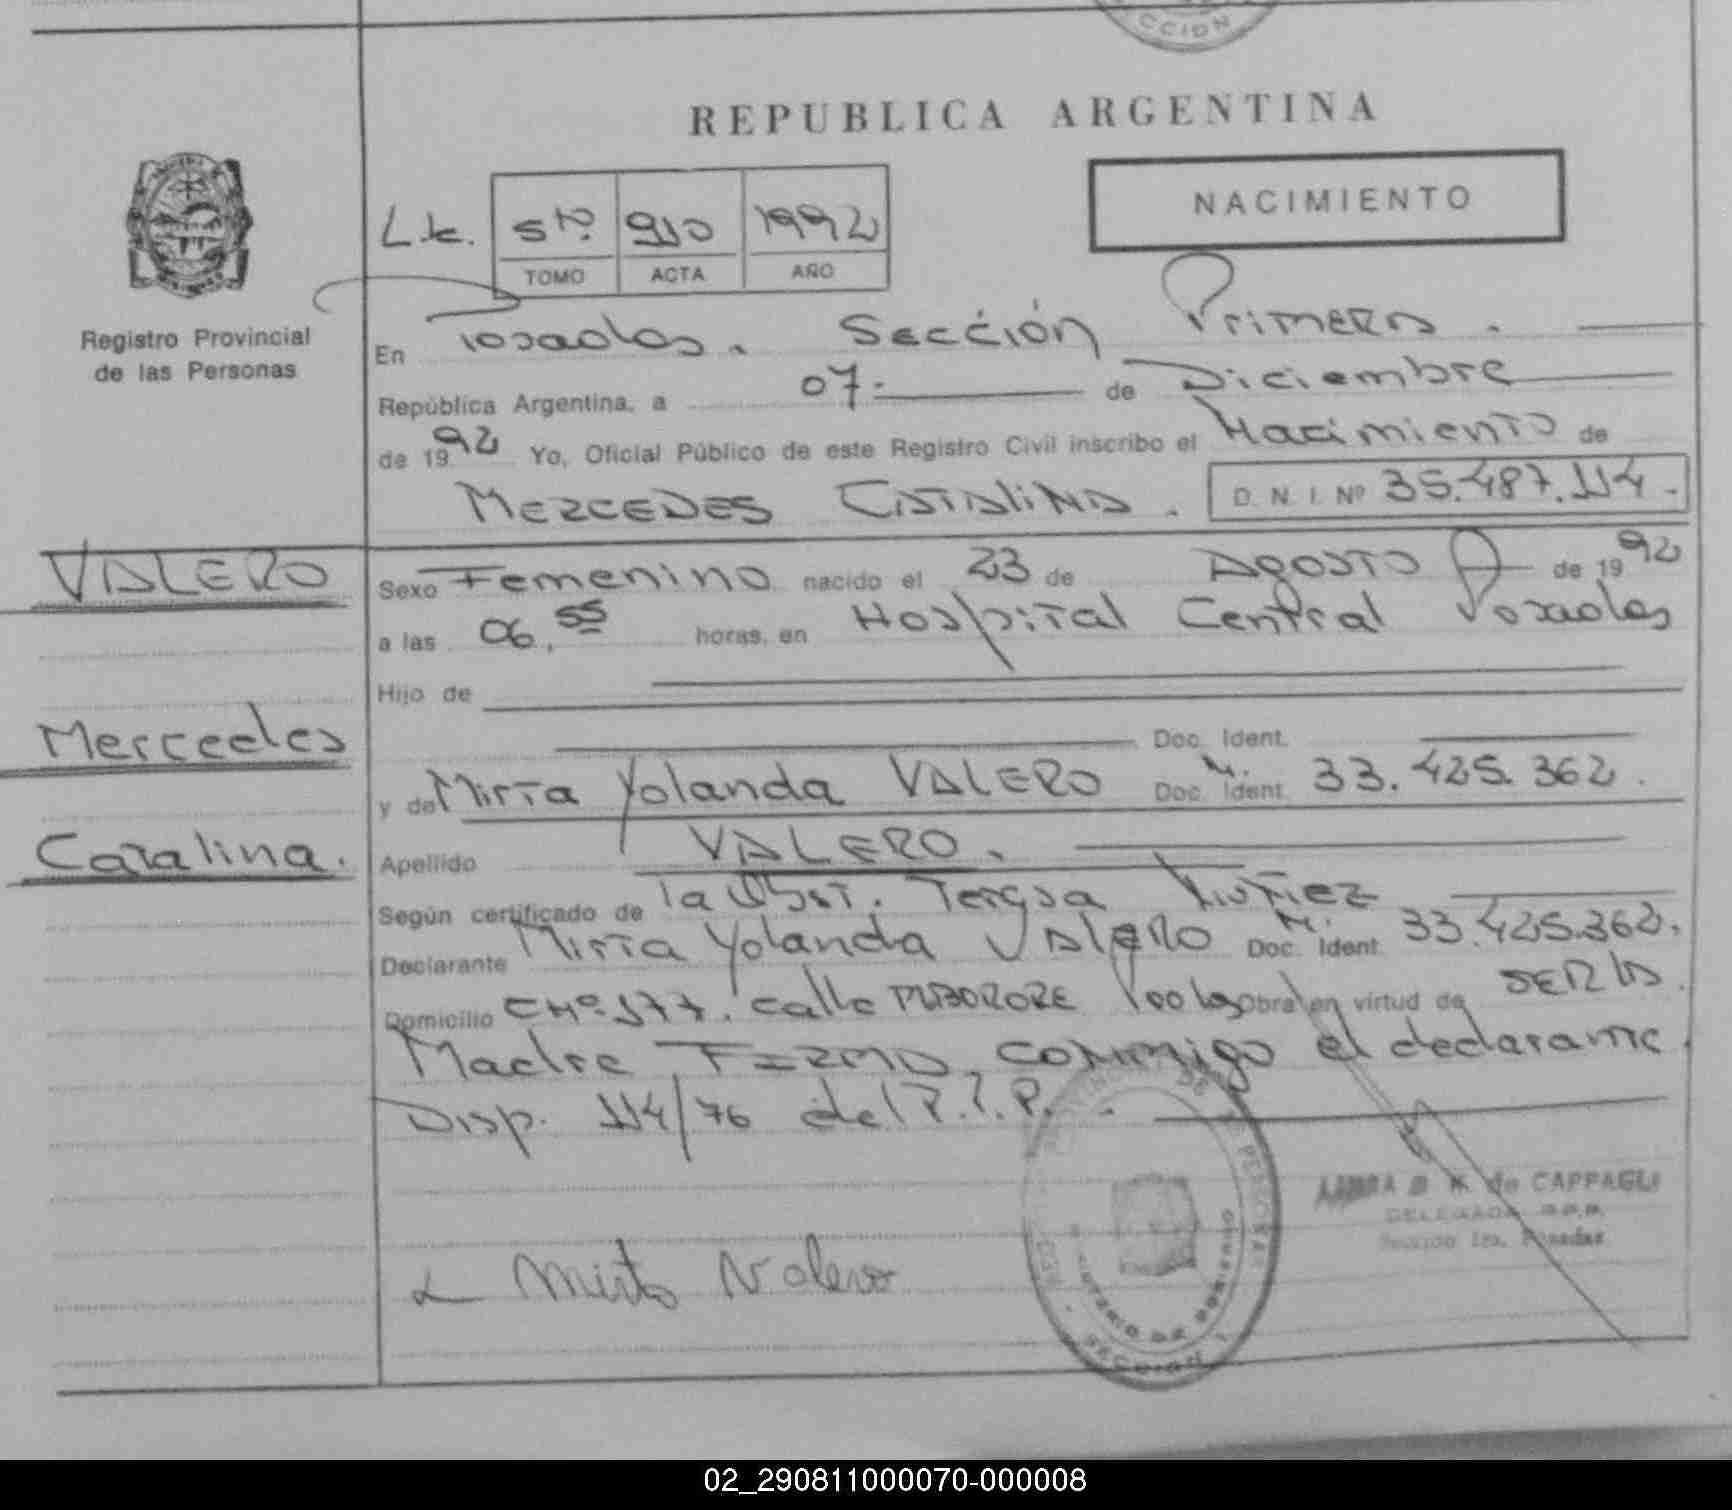 CCION
REPUBLICA ARGENTINA
NACIMIENTO
Lk. 5to. 910 1992
TOMO ACTA AÑO
Registro Provincial
de las Personas
En Posadas. Sección Primera.
República Argentina, a 07. de Diciembre
de 1992 Yo, Oficial Público de este Registro Civil inscribo el Nacimiento de
MERCEDES CATALINA. D. N. I. Nº 35.487.114.
VALERO
Sexo Femenino nacido el 23 de Agosto de 1992
a las 06,55 horas, en Hospital Central Posadas
Hijo de
Mercedes
Doc. Ident.
y de Mirta Yolanda VALERO Doc. Ident. 33.425.362.
Catalina.
Apellido VALERO.
Según certificado de la Obst. Teresa Nuñez
Declarante Mirta Yolanda VALERO Doc. Ident. 33.425.362.
Domicilio CHº 177. calle Pdas Obra en virtud de SER LA
Madre FIRMA conmigo el declarante.
Disp. 114/76 del R.P.P.
de CAPPAGLI
DELEGADA R.P.P.
Sección 1ra. Posadas
Mirta Valero
SECCION 1
02_290811000070-000008